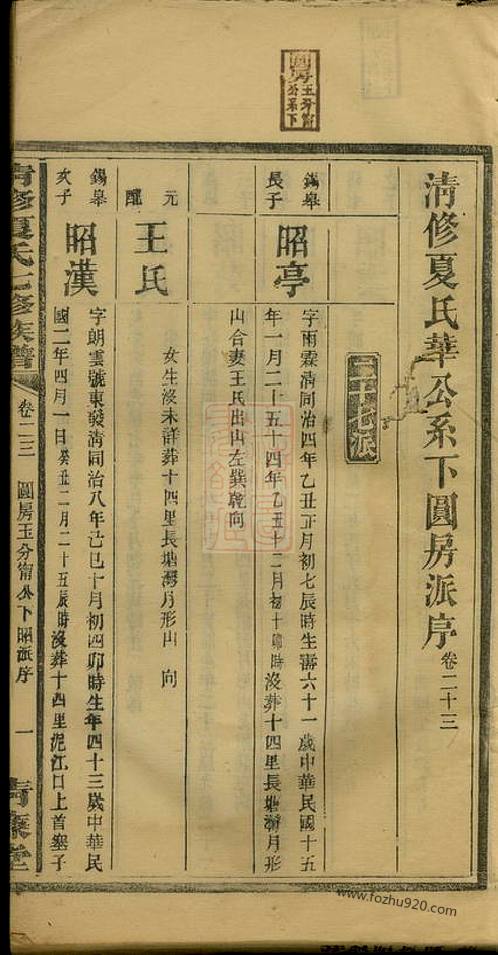 圓房玉分甯
公系下
清修夏氏華公系下圓房派序 卷二十三
二十七派
錫皋
長子
昭亭
字雨霖清同治四年乙丑正月初七辰時生壽六十一歲中華民國十五
年一月二十五十四年乙丑十二月初十卯時沒葬十四里長塘灣月形
山合妻王氏出山左巽乾向
元
配
王氏
女生沒未詳葬十四里長塘灣月形山 向
錫皋
次子
昭漢
字朗雲號東發清同治八年己巳十月初四卯時生年四十三歲中華民
國二年四月一日癸丑二月二十五辰時沒葬十四里泥江口上首塞子
清修夏氏七修族譜 卷二三 圓房玉分甯公下昭派序 一
www.fozhu920.com